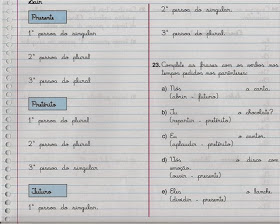 Sair
Presente
1ª pessoa do singular
2ª pessoa do plural
3ª pessoa do plural
Pretérito
1ª pessoa do plural
2ª pessoa do plural
3ª pessoa do singular
Futuro
1ª pessoa do singular
2ª pessoa do singular.
3ª pessoa do plural.
23. Complete as frases com os verbos nos
tempos pedidos nos parênteses:
a) Nós o carta.
(abrir - futuro)
b) Tu o chocolate?
(repartir - pretérito)
c) Eu o cantor.
(aplaudir - pretérito)
d) Nós o disco com
emoção.
(ouvir - presente)
e) Eles o lanche.
(dividir - presente)